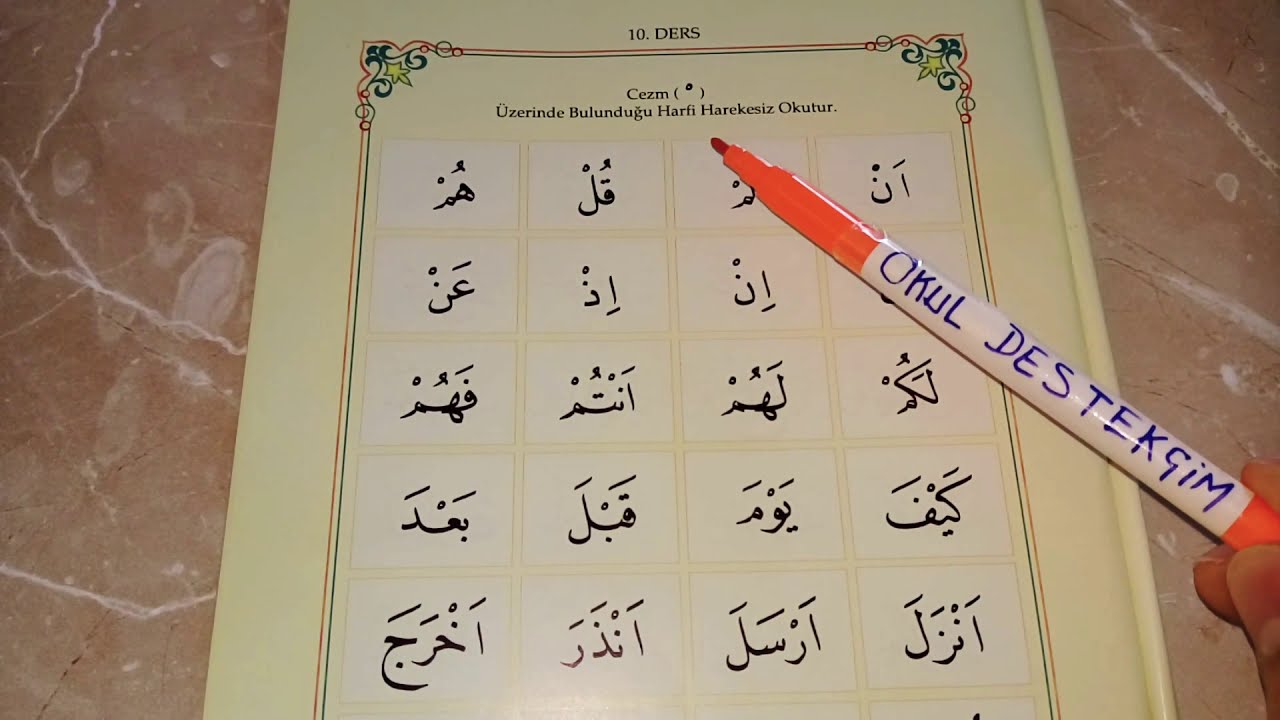 10. DERS
Cezm ( ْ )
Üzerinde Bulunduğu Harfi Harekesiz Okutur.
اَنْ قُلْ هُمْ
اِنْ اِذْ عَنْ
لَكُمْ لَهُمْ اَنْتُمْ فَهُمْ
كَيْفَ يَوْمَ قَبْلَ بَعْدَ
اَنْزَلَ اَرْسَلَ اَنْذَرَ اَخْرَجَ
OKUL DESTEKÇİM